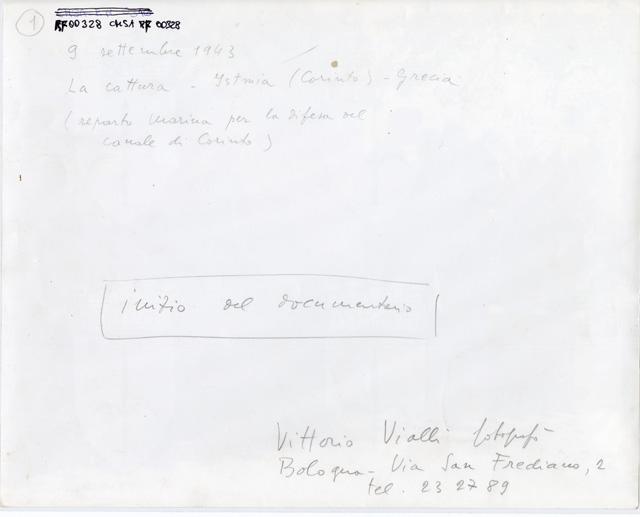 1
RF00328 CHS1 RF 00328
9 settembre 1943
La cattura - Istmia (Corinto) - Grecia
(reparto marina per la difesa del
canale di Corinto)
inizio del documentario
Vittorio Vialli fotografò
Bologna - Via San Frediano, 2
tel. 23 27 89